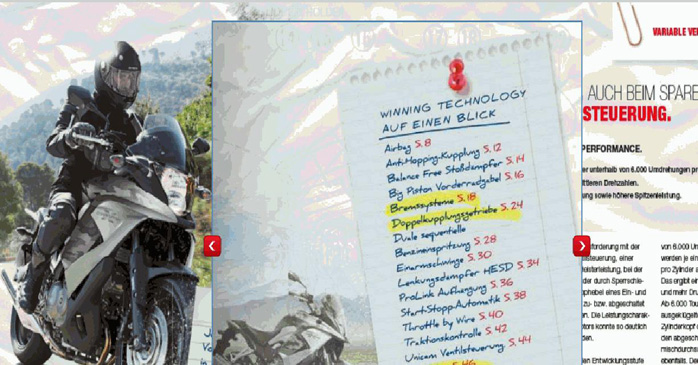 WINNING TECHNOLOGY
AUF EINEN BLICK
Airbag S. 8
Anti-Hopping-Kupplung S. 12
Balance Free Stoßdämpfer S. 14
Big Piston Vorderradgabel S. 16
Bremssysteme S. 18
Doppelkupplungsgetriebe S. 24
Duale sequentielle
Benzineinspritzung S. 28
Einarmschwinge S. 30
Lenkungsdämpfer HESD S. 34
ProLink Aufhängung S. 36
Start-Stopp-Automatik S. 38
Throttle by Wire S. 40
Traktionskontrolle S. 42
Unicam Ventilsteuerung S. 44
S. 46
VARIABLE VE
AUCH BEIM SPARE
STEUERUNG.
PERFORMANCE.
er unterhalb von 6.000 Umdrehungen pr
ittleren Drehzahlen.
ng sowie höhere Spitzenleistung.
forderung mit der
lsteuerung, einer
leisterleistung, bei der
der durch Sperrschie-
phebel eines Ein- und
zu- bzw. abgeschaltet
n. Die Leistungscharak-
tors konnte so deutlich
den.
en Entwicklungsstufe
von 6.000 Um
werden je ein
pro Zylinder
Das ergibt ei
und mehr Dru
Ab 6.000 Tou
ausgeklügelte
Zylinderkopf
den abgesch
mischdurchs
ebenfalls. De